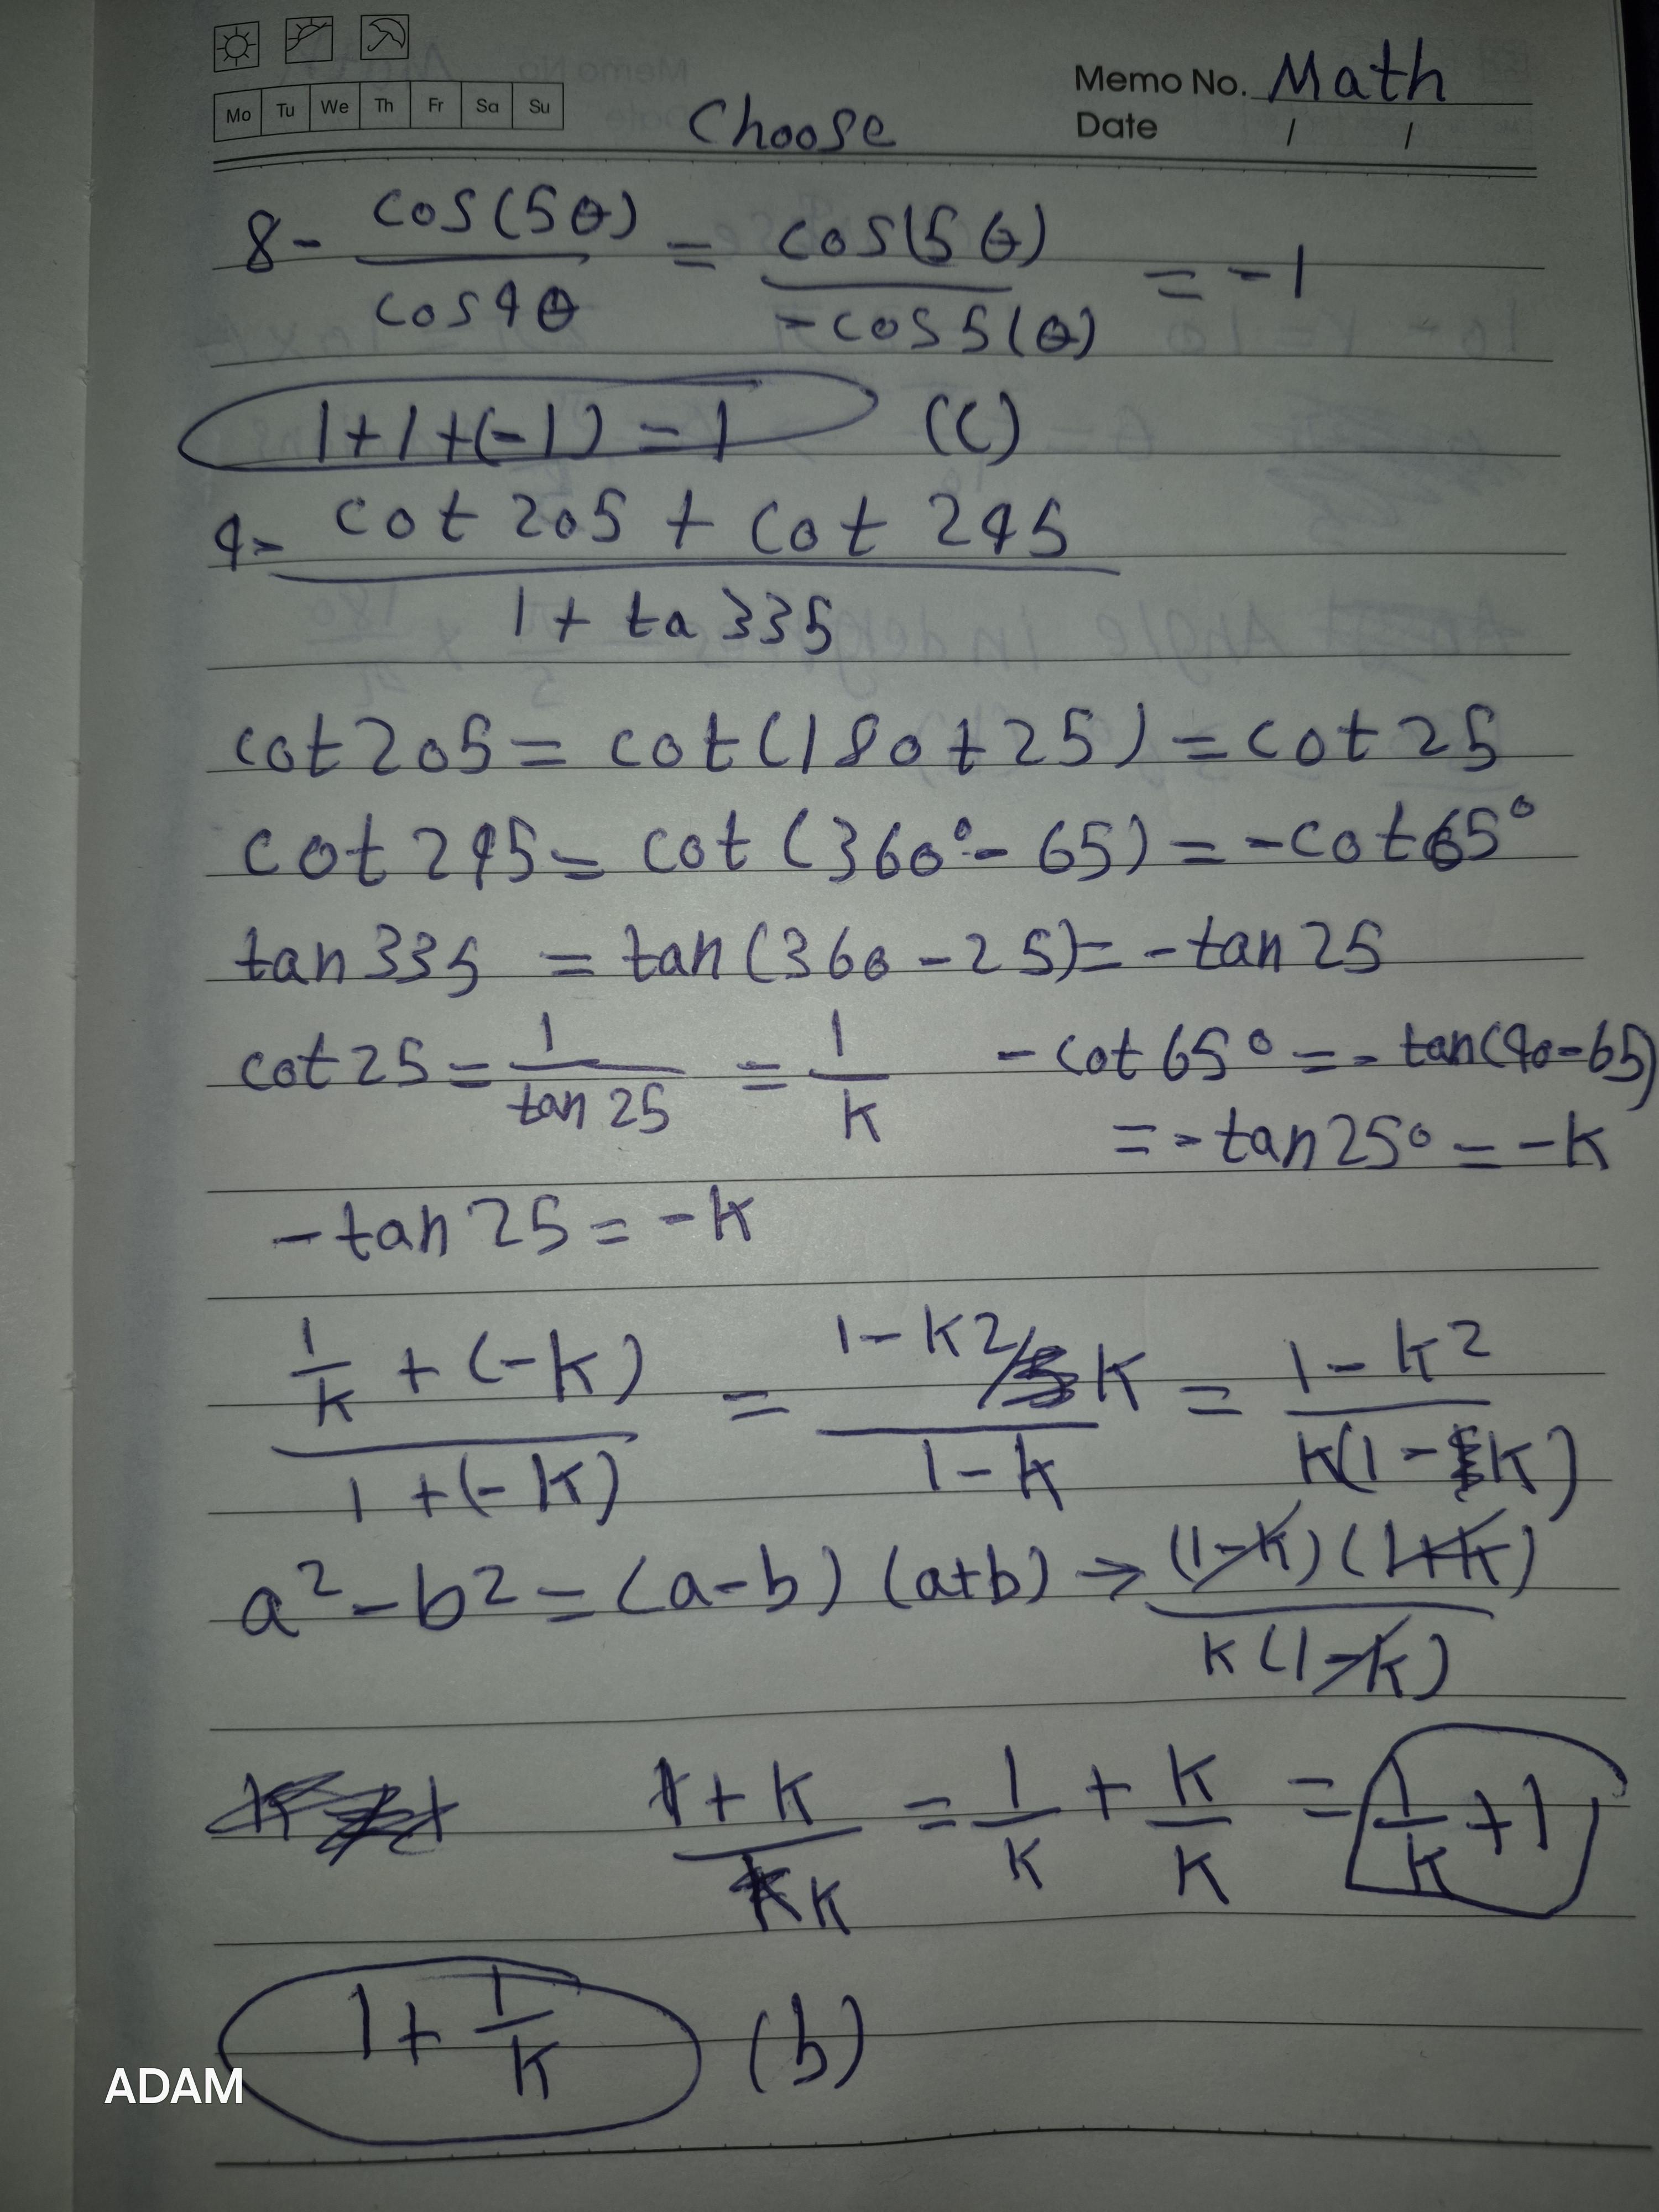 Mo Tu We Th Fr Sa Su
Choose
Memo No. Math
Date / /
8- cos(5θ)/cos4θ = cos(5θ)/-cos5(θ) = -1
1+1+(-1) = 1 (C)
9- cot 205 + cot 295
1 + ta 335
cot 205 = cot(180+25) = cot 25
cot 295 = cot (360°- 65) = -cot65°
tan 335 = tan(360-25) = -tan 25
cot 25 = 1/tan 25 = 1/K -cot 65° = - tan(90-65)
= - tan 25° = -K
-tan 25 = -K
1/K + (-K) / 1 + (-K) = 1-K2/K / 1-K = 1-K² / K(1-K)
a² - b² = (a-b) (a+b) → (1-K)(1+K) / K(1-K)
1+K / K = 1/K + K/K = 1/K + 1
1 + 1/K (b)
ADAM